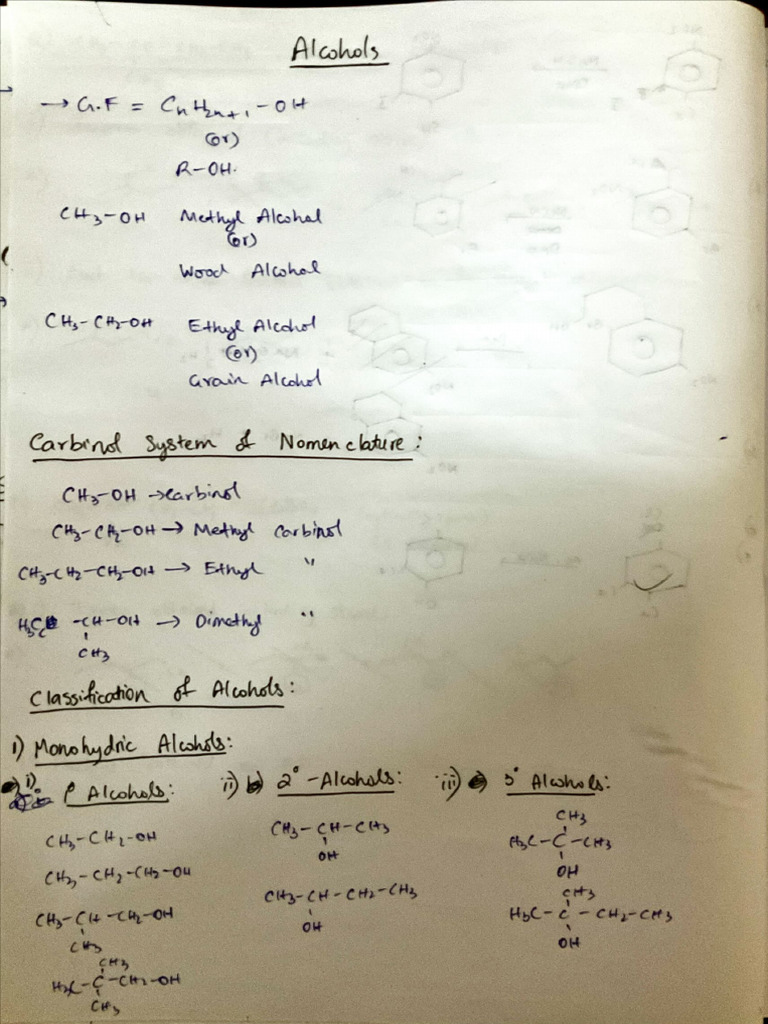 Alcohols
→ G.F = CnH2n+1-OH
(or)
R-OH.
CH3-OH Methyl Alcohol
(or)
Wood Alcohol
CH3-CH2-OH Ethyl Alcohol
(or)
Grain Alcohol
Carbinol System of Nomenclature:
CH3-OH → Carbinol
CH3-CH2-OH → Methyl Carbinol
CH3-CH2-CH2-OH → Ethyl "
H3C -CH-OH → Dimethyl "
CH3
Classification of Alcohols:
1) Monohydric Alcohols:
i) 1° Alcohols: ii) b) 2°-Alcohols: iii) 3° Alcohols:
CH3-CH2-OH
CH3-CH2-CH2-OH
CH3-CH-CH2-OH
CH3
CH3
H3C-C-CH2-OH
CH3
CH3-CH-CH3
OH
CH3-CH-CH2-CH3
OH
CH3
H3C-C-CH3
OH
CH3
H3C-C-CH2-CH3
OH